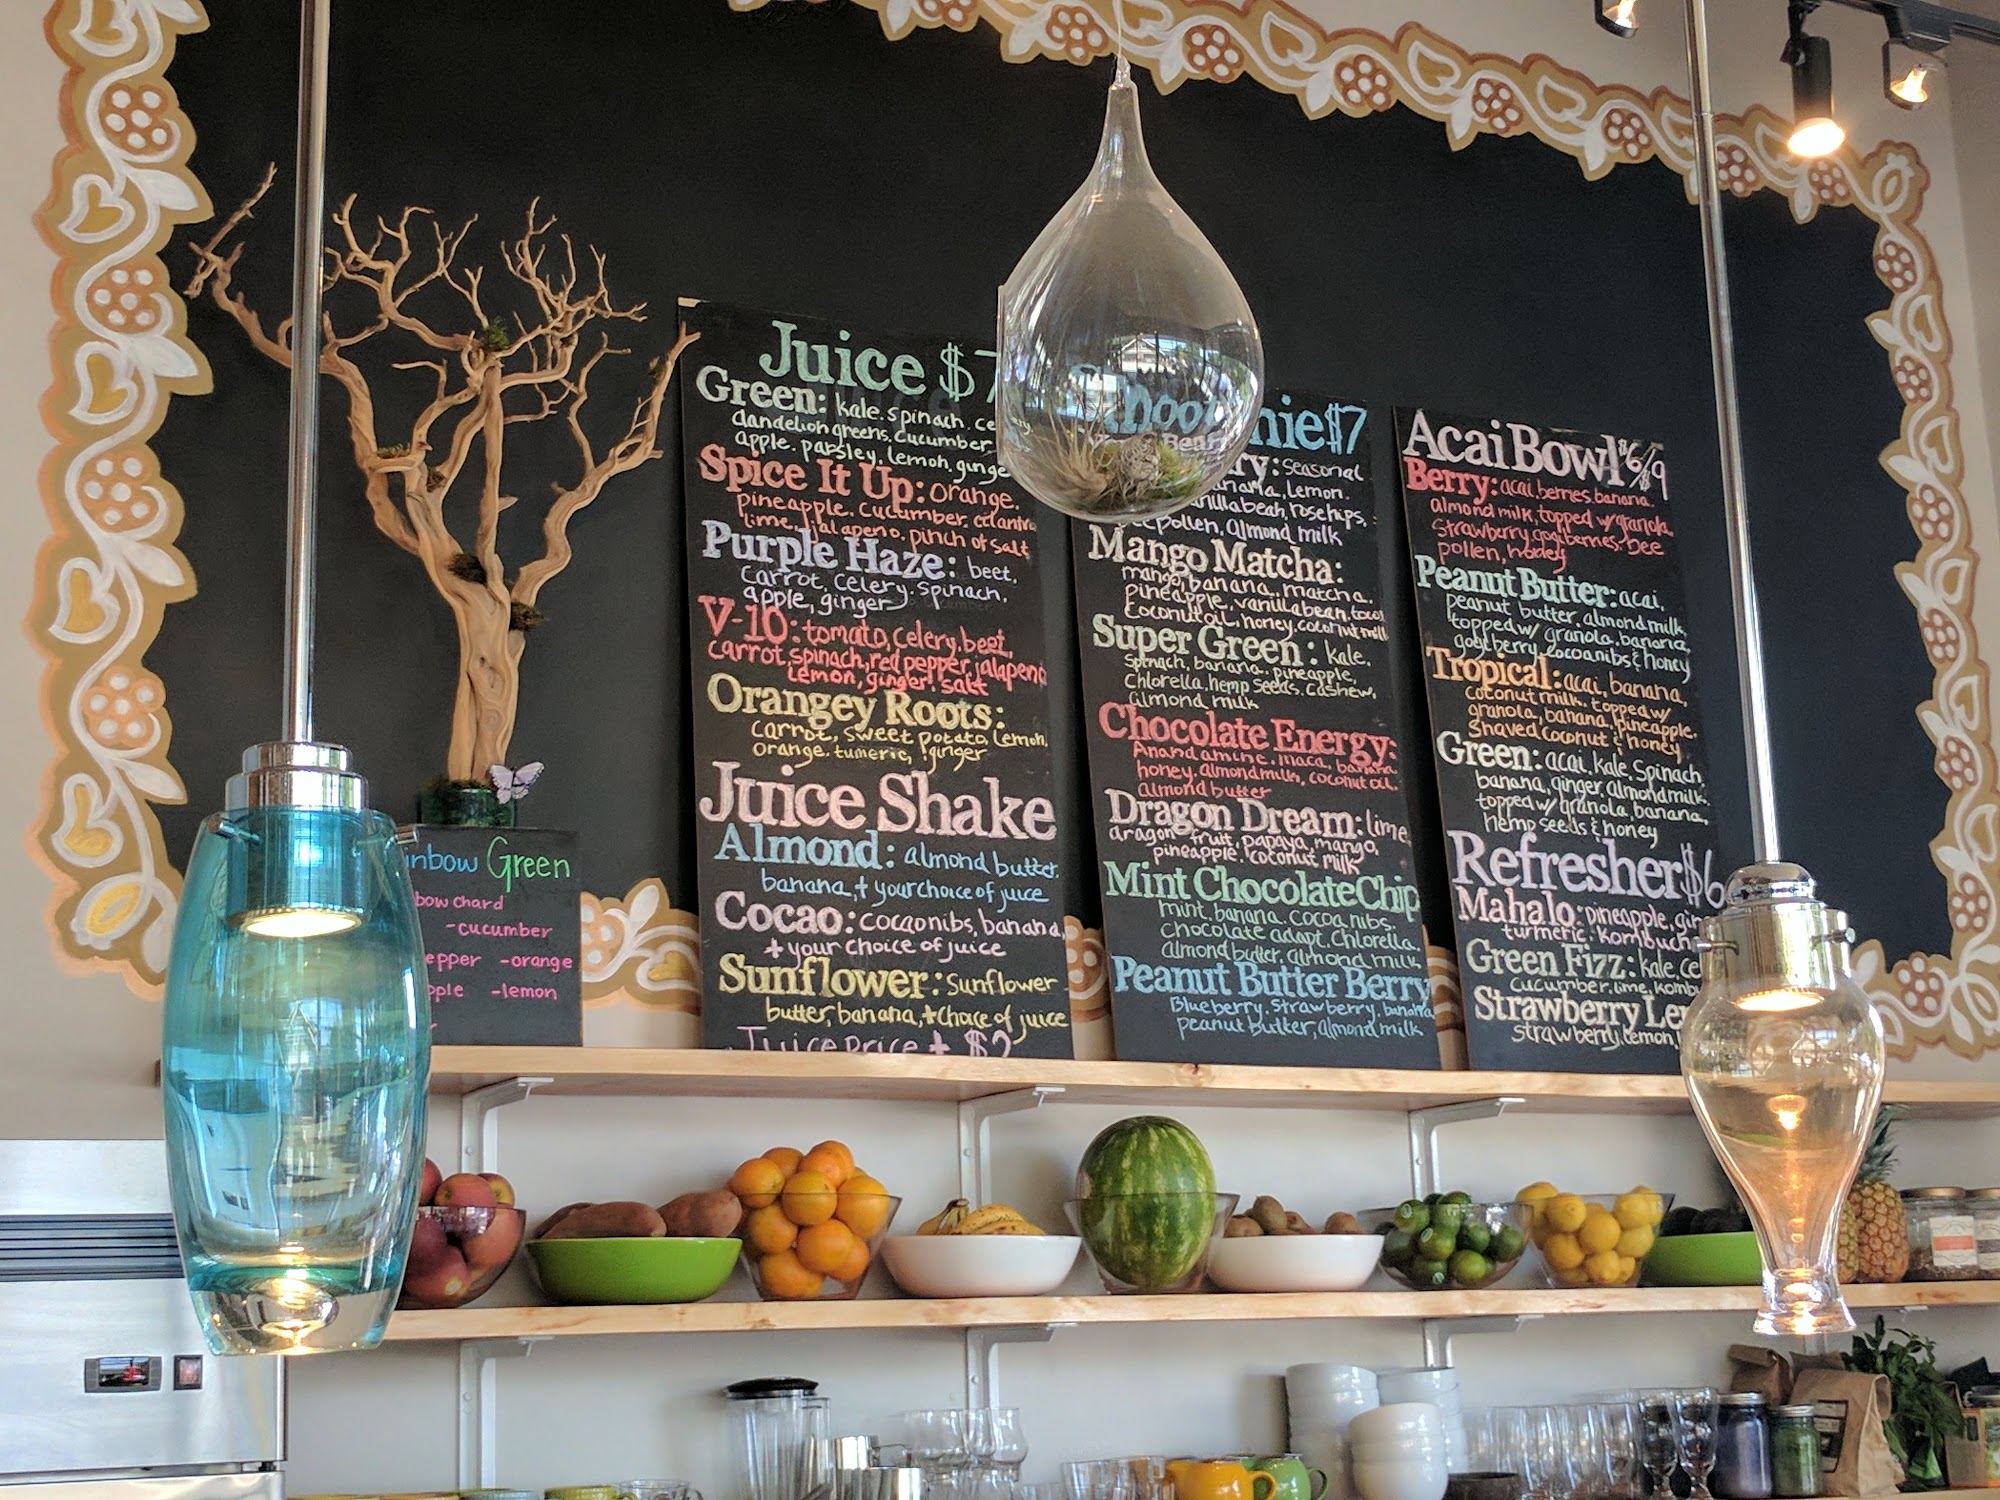 Green
bow chard
-cucumber
epper -orange
pple -lemon
Juice $7
Green: kale. spinach. ce
dandelion greens. cucumber,
apple. parsley, lemon, ginge
Spice It Up: Orange.
pineapple. cucumber. cilantro
lime, jalapeno. pinch of salt
Purple Haze: beet.
carrot. celery. spinach.
apple, ginger
V-10: tomato, celery. beet,
carrot, spinach, red pepper, jalapeno
lemon, ginger. salt
Orangey Roots:
carrot, sweet potato, lemon,
orange. tumeric, ginger
Juice Shake
Almond: almond butter.
banana + your choice of juice
Cocao: cocao nibs, banana,
+ your choice of juice
Sunflower: Sunflower
butter, banana, + choice of juice
Juice Price + $2
hie $7
ry: seasonal
anana, lemon.
anilla bean, rosehips,
pollen, almond milk
Mango Matcha:
mango, banana. matcha.
pineapple. vanilla bean. cocoa
coconut oil, honey. coconut milk
Super Green: kale.
spinach, banana. pineapple,
chlorella, hemp seeds. cashew,
almond milk
Chocolate Energy:
Anandamine. maca, banana
honey. almond milk, coconut oil.
almond butter
Dragon Dream: lime,
dragon fruit, papaya, mango,
pineapple. coconut milk
Mint Chocolate Chip
mint. banana. cocoa nibs.
chocolate adapt. chlorella.
almond butter, almond milk
Peanut Butter Berry
Blueberry. strawberry, banana
peanut butter, almond milk
Acai Bowl $6/$9
Berry: acai, berries. banana.
almond milk, topped w/ granola,
strawberry, goji berries. bee
pollen, honey
Peanut Butter: acai,
peanut butter. almond milk.
topped w/ granola, banana,
goji berry, cocoa nibs & honey
Tropical: acai, banana,
coconut milk. topped w/
granola, banana, pineapple.
shaved coconut & honey
Green: acai. kale. spinach,
banana, ginger, almond milk.
topped w/ granola, banana,
hemp seeds & honey
Refresher $6
Mahalo: pineapple, gin
turmeric, kombuch
Green Fizz: kale, ce
cucumber, lime, kombu
Strawberry Le
strawberry, lemon,